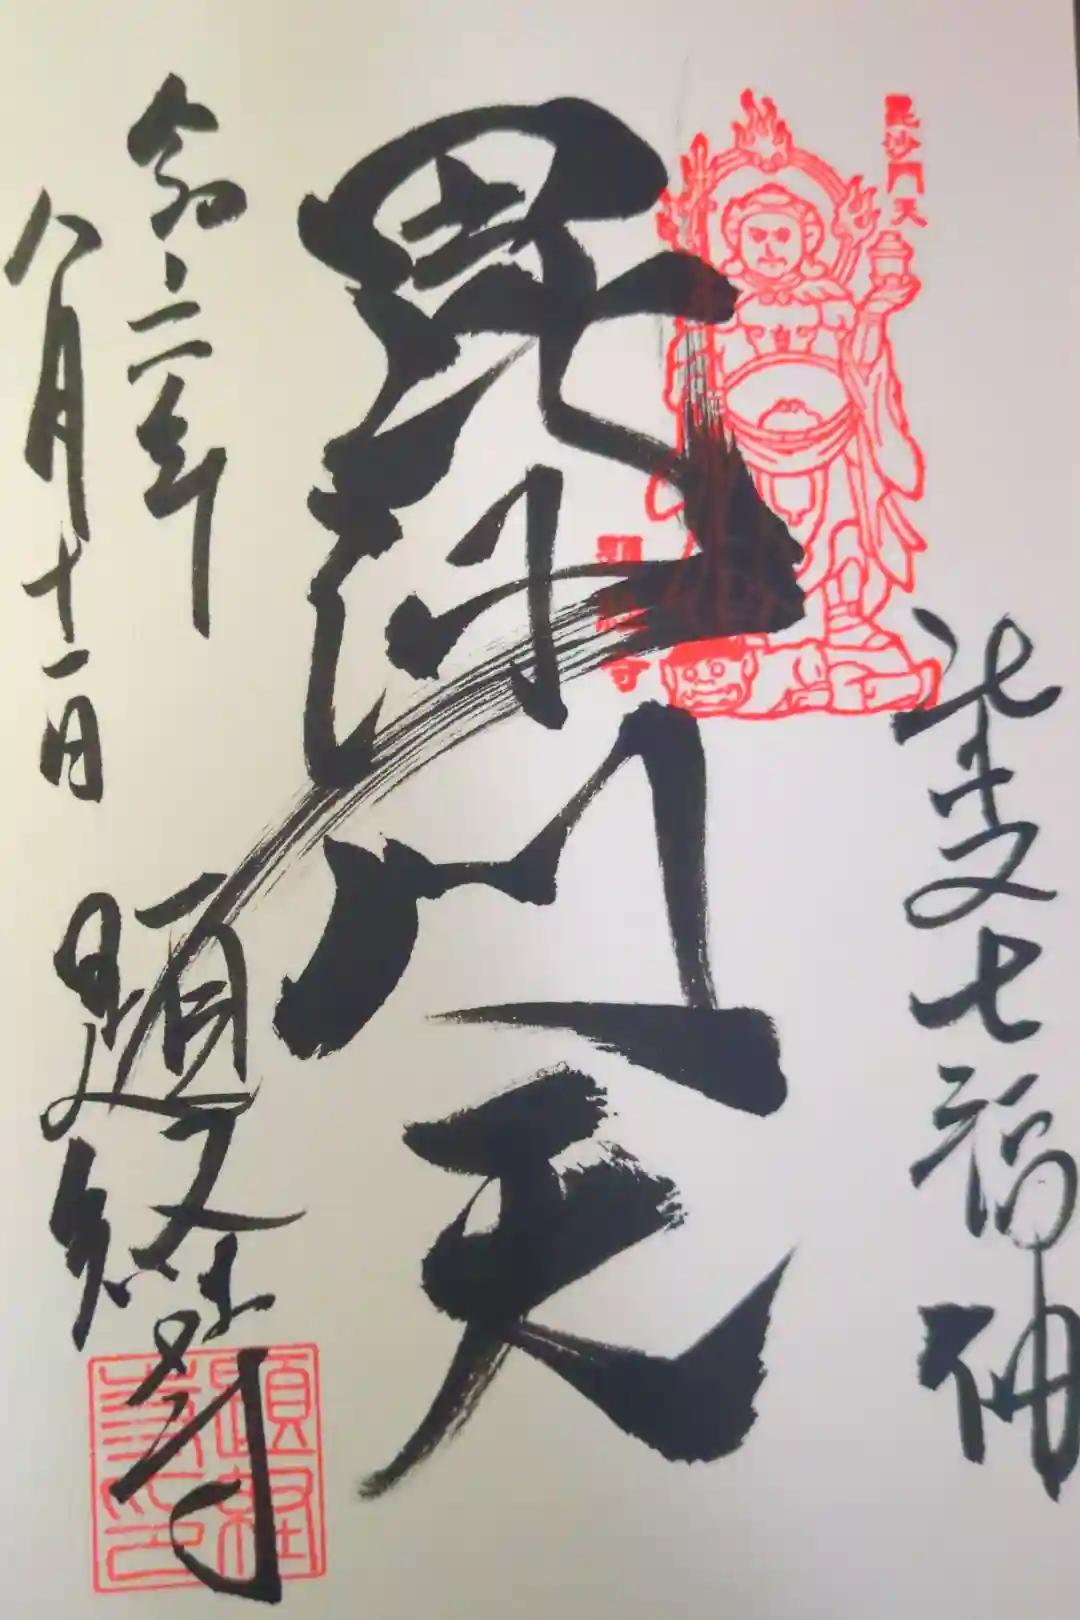 毘沙門天
柴又七福神
毘沙門天
題経寺
令和二年
八月十一日
題経寺
題経寺印